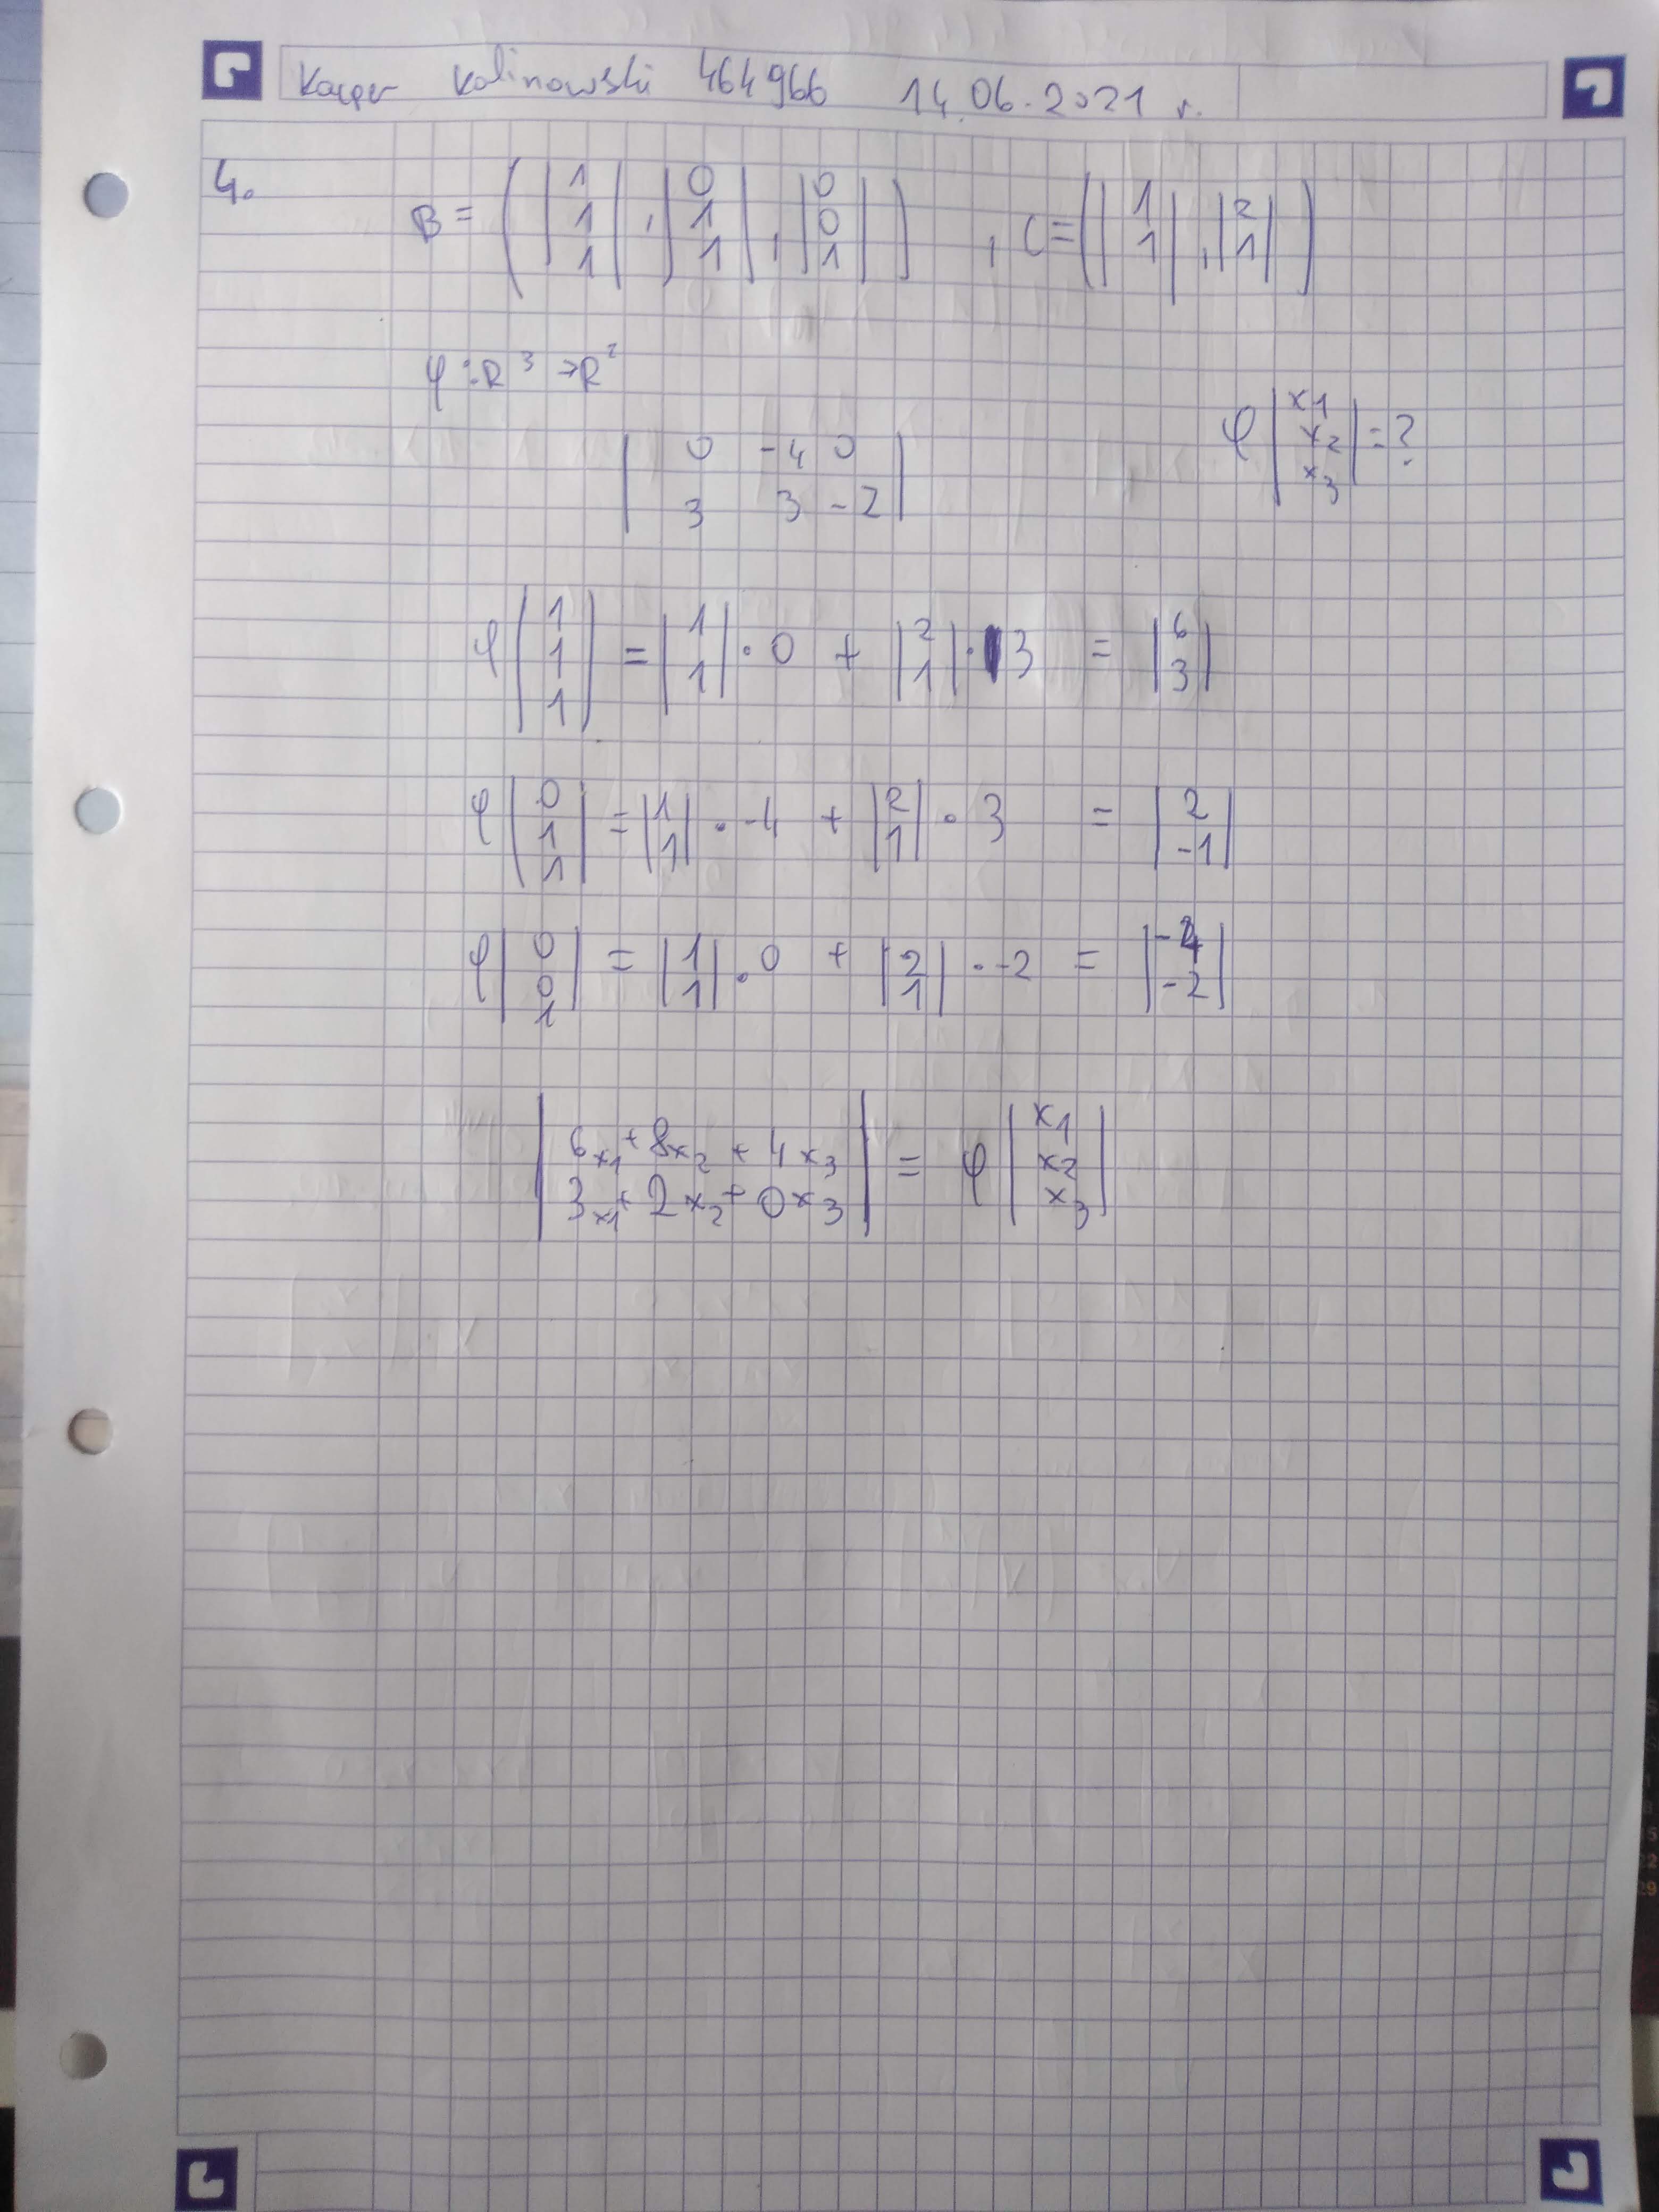 Kacper Kalinowski 464966 14.06.2021 r.
4.
B = ( | 1 1 1 | , | 0 1 1 | , | 0 0 1 | ) , C = ( | 1 1 | , | 2 1 | )
φ : R³ → R²
φ | x1 x2 x3 | = ?
| 0 -4 0 |
| 3 3 -2 |
φ | 1 1 1 | = | 1 1 | · 0 + | 2 1 | · 3 = | 6 3 |
φ | 0 1 1 | = | 1 1 | · -4 + | 2 1 | · 3 = | 2 -1 |
φ | 0 0 1 | = | 1 1 | · 0 + | 2 1 | · -2 = | -4 -2 |
| 6x1 + 8x2 + 4x3 | = φ | x1 x2 x3 |
| 3x1 + 2x2 + 0x3 |